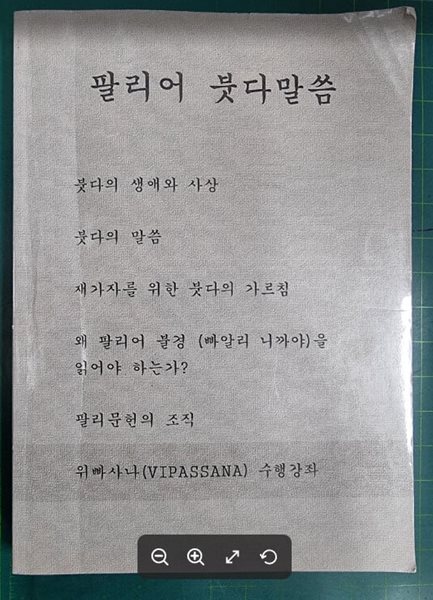 팔리어 붓다말씀
붓다의 생애와 사상
붓다의 말씀
재가자를 위한 붓다의 가르침
왜 팔리어 불경 (빠알리 니까야)을
읽어야 하는가?
팔리문헌의 조직
위빠사나(VIPASSANA) 수행강좌